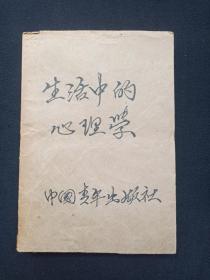 生活中的
心理学
中国青年出版社